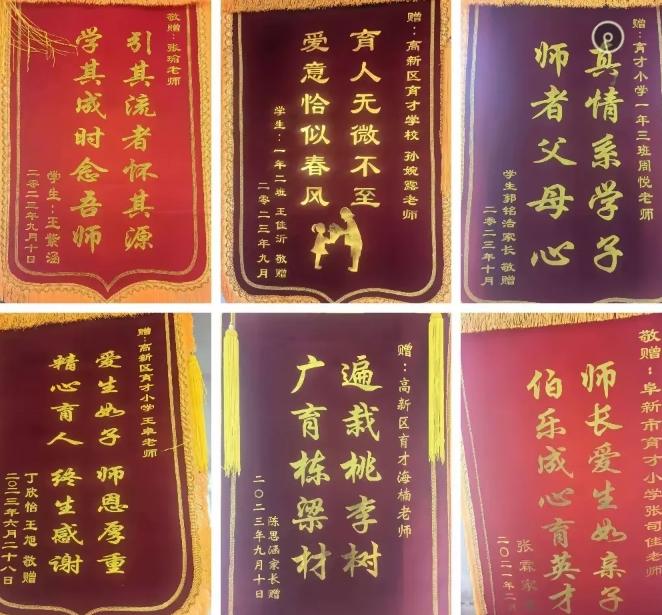 敬赠：张瑜老师
引其流者怀其源
学其成时念吾师
学生：王紫涵
二零二三年九月十日
赠：高新区育才学校 孙婉露老师
育人无微不至
爱意恰似春风
学生：一年二班 王佳沂 敬赠
二零二三年九月
赠：育才小学一年三班周悦老师
真情系学子
师者父母心
学生郭铭浩家长 敬赠
二零二三年十月
赠：高新区育才小学 王聿老师
爱生如子 师恩厚重
精心育人 终生感谢
丁欣怡 王旭 敬赠
二〇二三年六月二十八日
赠：高新区育才海楠老师
遍栽桃李树
广育栋梁材
陈思涵家长赠
二〇二三年九月十日
敬赠：阜新市育才小学张司佳老师
师长爱生如亲子
伯乐成心育英才
张霖家
二〇二一年二